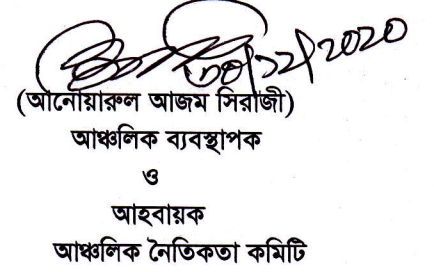 ৩০/১২/২০২০
(আনোয়ারুল আজম সিরাজী)
আঞ্চলিক ব্যবস্থাপক
ও
আহবায়ক
আঞ্চলিক নৈতিকতা কমিটি